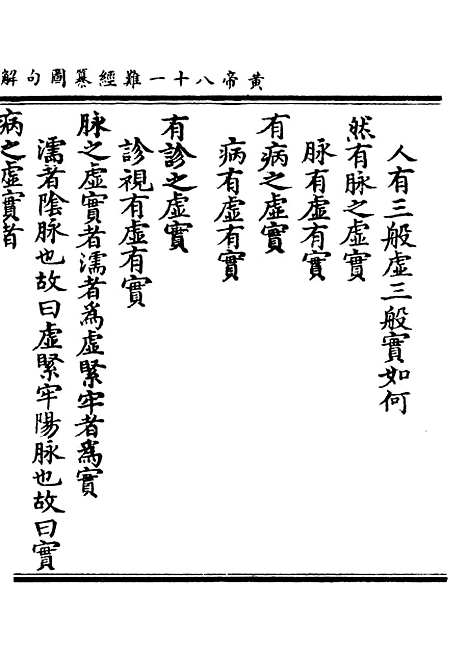 黃帝八十一難經纂圖句解
人有三般虛三般實如何
然有脉之虛實
脉有虛有實
有病之虛實
病有虛有實
有診之虛實
診視有虛有實
脉之虛實者濡者為虛緊牢者為實
濡者陰脉也故曰虛緊牢陽脉也故曰實
病之虛實者